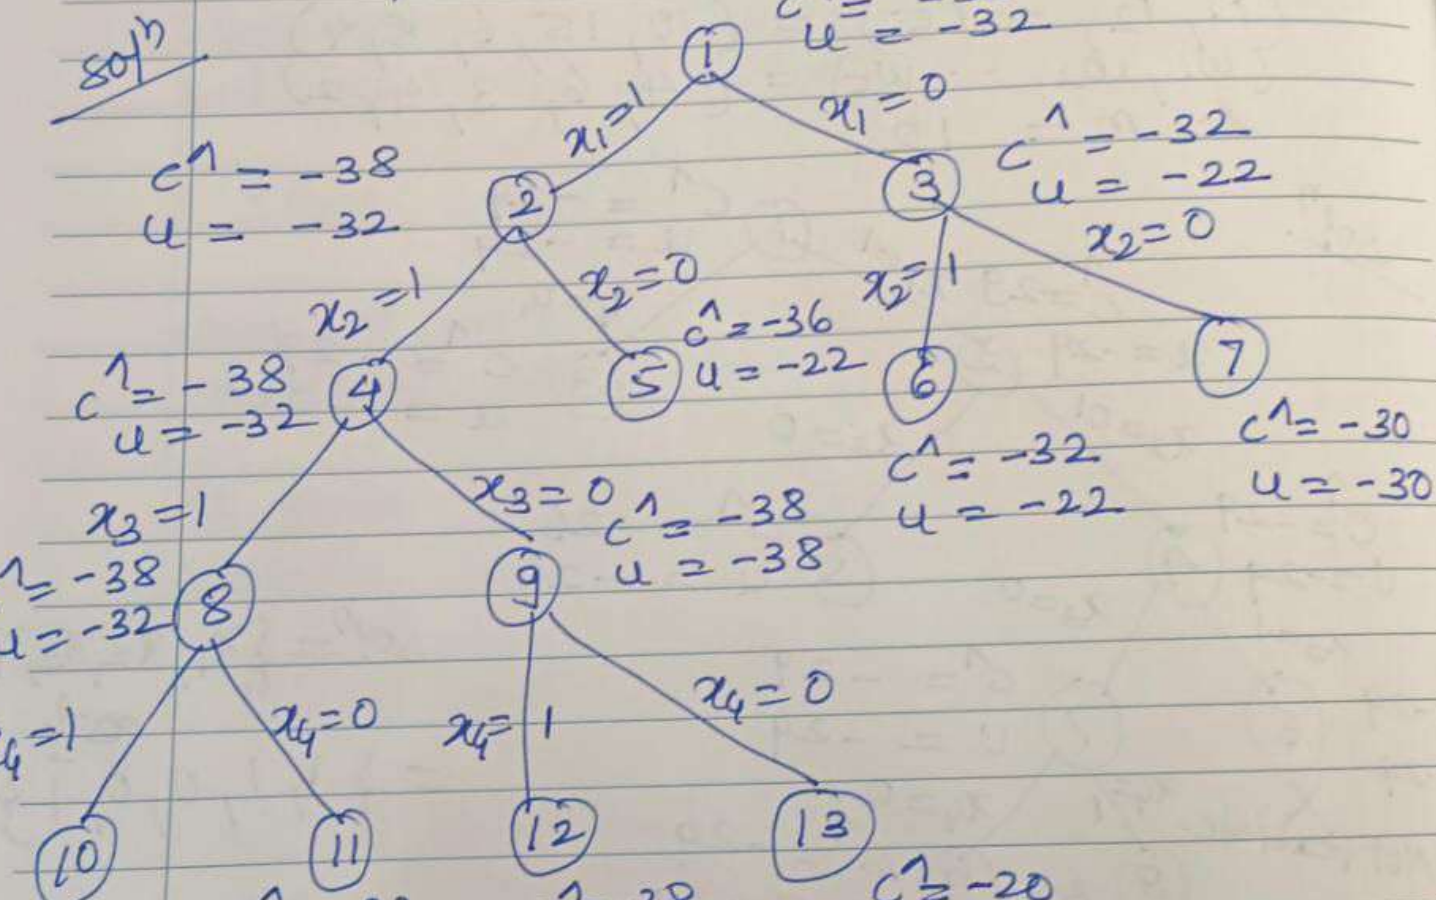 soln
c^ =
u = -32
1
x1=1
x1=0
c^ = -38
u = -32
2
3
c^ = -32
u = -22
x2=1
x2=0
x2=1
x2=0
c^ = -38
u = -32
4
5
c^ = -36
u = -22
6
7
c^ = -32
u = -22
c^ = -30
u = -30
x3=1
x3=0
^ = -38
u = -32
8
9
c^ = -38
u = -38
4=1
x4=0
x4=1
x4=0
10
11
12
13
c^ = -20